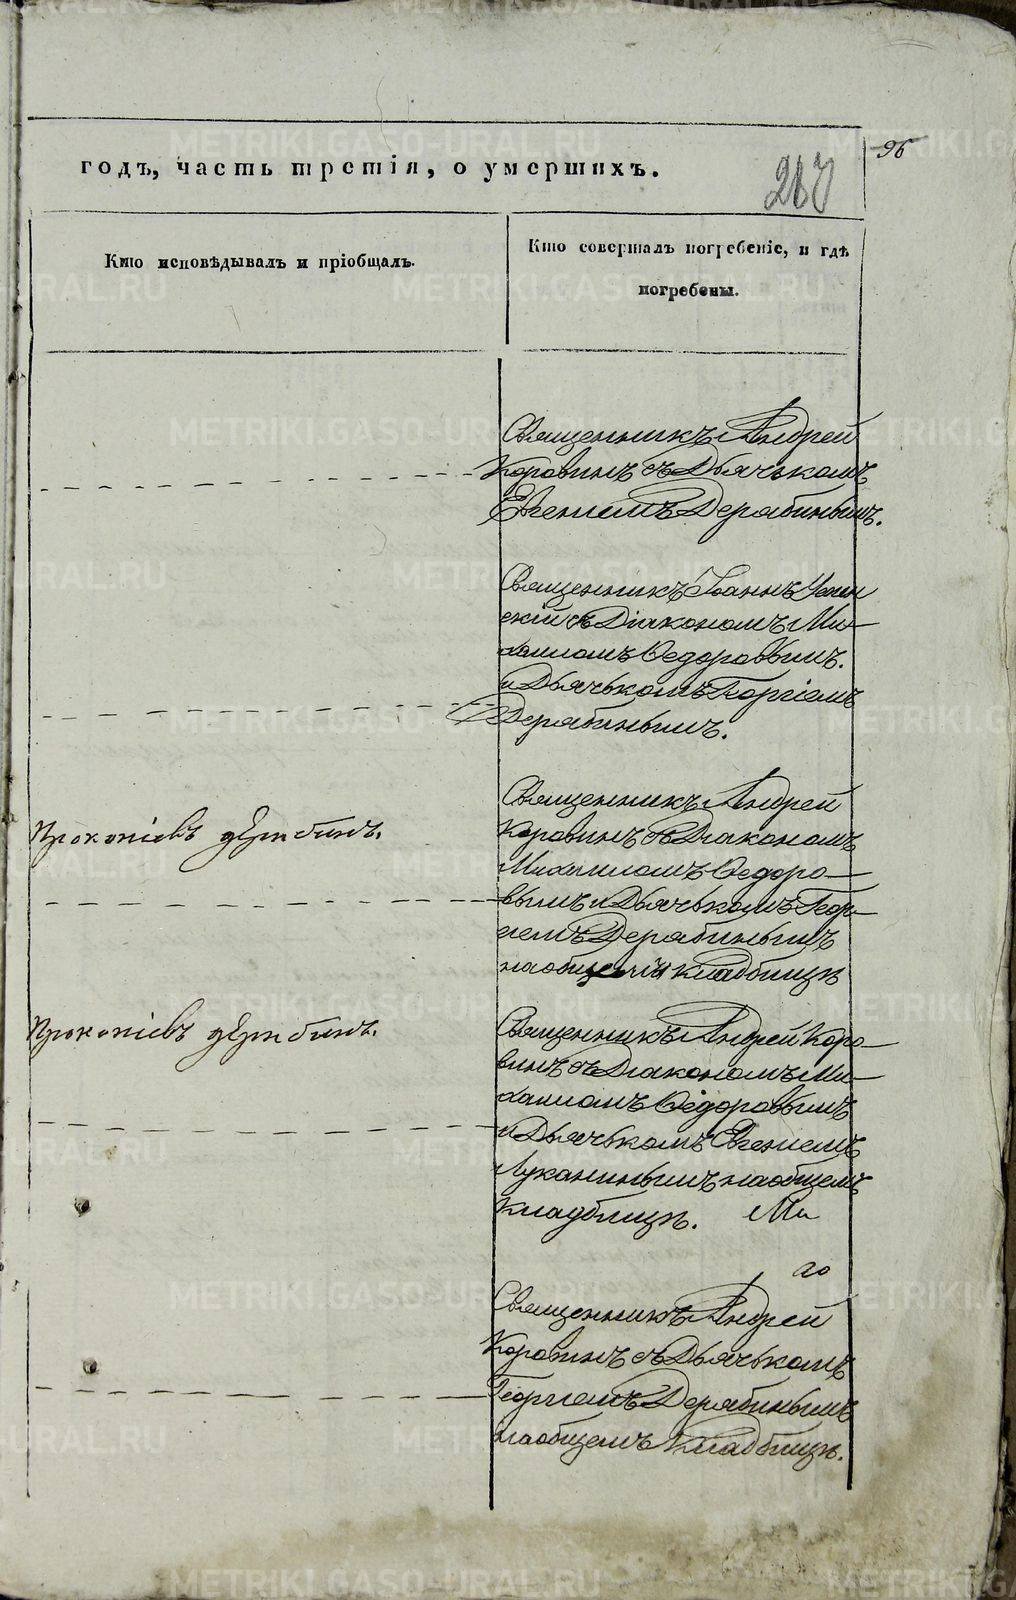 96
годъ, часть третія, о умершихъ.
217
Кто исповѣдывалъ и пріобщалъ.
Кто совершалъ погребеніе, и гдѣ
погребены.
Священникъ Андрей
Коровинъ съ Дьячькомъ
Евгениемъ Дерябинымъ.
Священникъ Іоаннъ
скій съ Діакономъ Ми-
хаиломъ Федоровымъ.
и Дьячькомъ Георгіемъ
Дерябинымъ.
Священникъ Андрей
Коровинъ съ Диакономъ
Михаиломъ Федоро-
вымъ и Дьячькомъ Геор-
гемъ Дерябинымъ
на общемъ кладбищѣ
Прокопіевъ дерябинъ.
Священникъ Андрей Коро-
винъ съ Диакономъ Ми-
хаиломъ Федоровымъ
и Дьячькомъ Евгениемъ
Луканинымъ на общемъ
кладбищѣ. Ми
Прокопіевъ дерябинъ.
го
Священникъ Андрей
Коровинъ съ Дьячькомъ
Георгиемъ Дерябинымъ
на общемъ Кладбищѣ.
METRIKI.GASO-URAL.RU